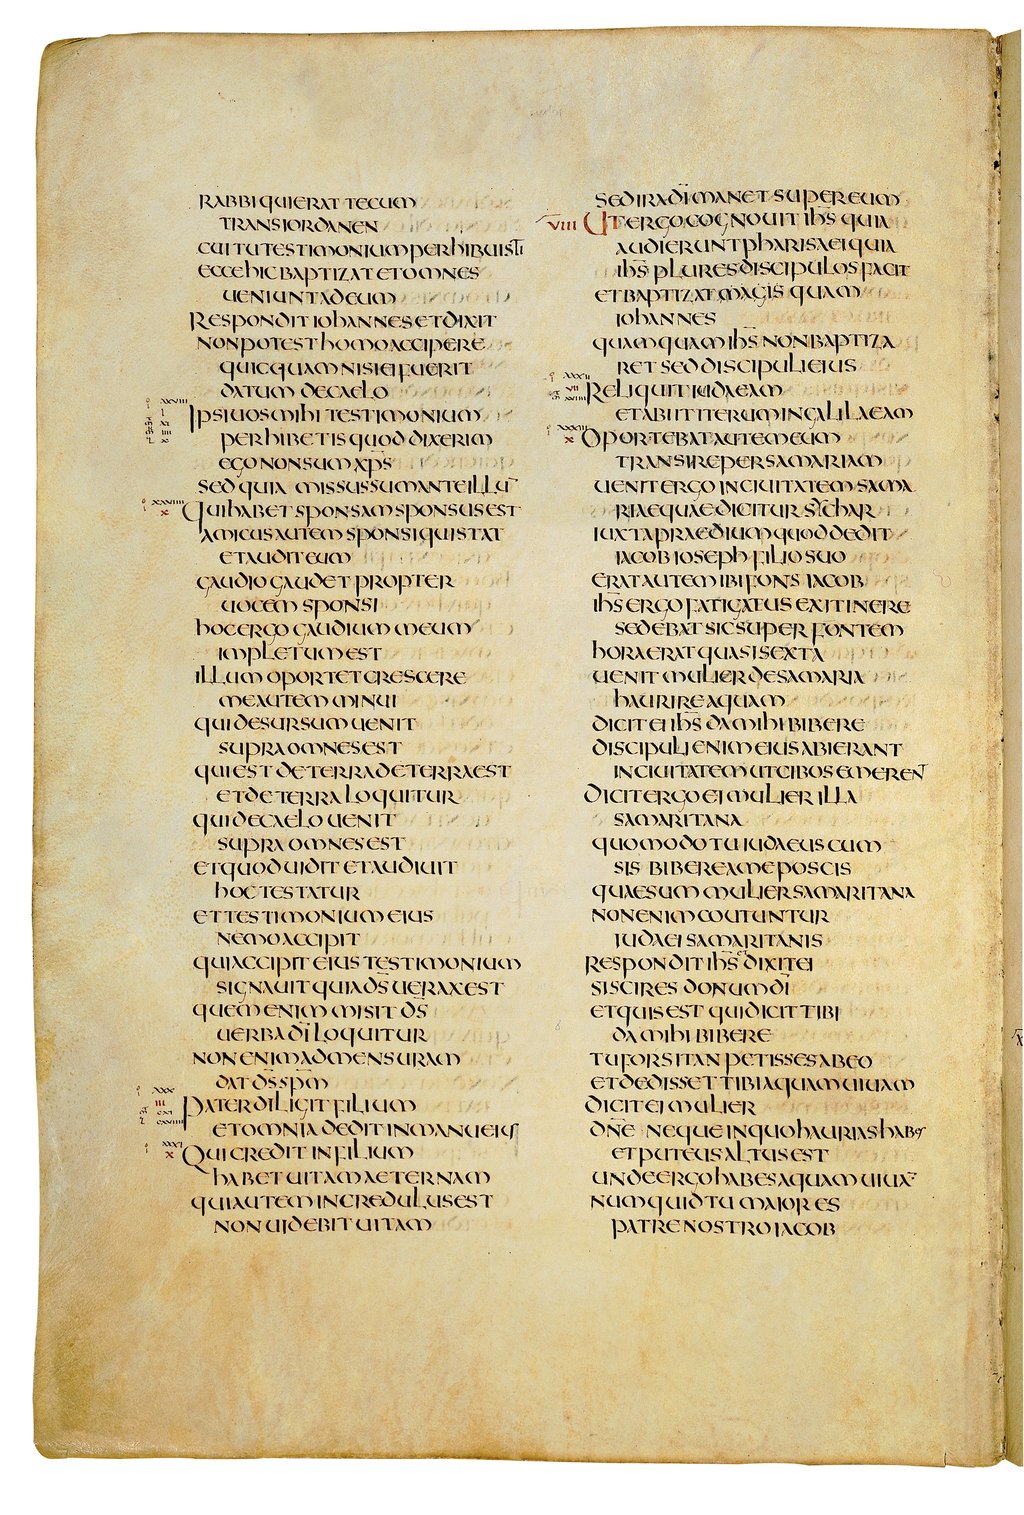 RABBI QUI ERAT TECUM
TRANS IORDANEN
CUI TU TESTIMONIUM PERHIBUISTI
ECCE HIC BAPTIZAT ET OMNES
UENIUNT AD EUM
RESPONDIT IOHANNES ET DIXIT
NON POTEST HOMO ACCIPERE
QUICQUAM NISI EI FUERIT
DATUM DE CAELO
XXVIII
IPSI UOS MIHI TESTIMONIUM
PERHIBETIS QUOD DIXERIM
EGO NON SUM XP̅S
SED QUIA MISSUS SUM ANTE ILLU̅
XXVIIII
X
QUI HABET SPONSAM SPONSUS EST
AMICUS AUTEM SPONSI QUI STAT
ET AUDIT EUM
GAUDIO GAUDET PROPTER
UOCEM SPONSI
HOC ERGO GAUDIUM MEUM
IMPLETUM EST
ILLUM OPORTET CRESCERE
ME AUTEM MINUI
QUI DESURSUM UENIT
SUPRA OMNES EST
QUI EST DE TERRA DE TERRA EST
ET DE TERRA LOQUITUR
QUI DE CAELO UENIT
SUPRA OMNES EST
ET QUOD UIDIT ET AUDIUIT
HOC TESTATUR
ET TESTIMONIUM EIUS
NEMO ACCIPIT
QUI ACCIPIT EIUS TESTIMONIUM
SIGNAUIT QUIA D̅S UERAX EST
QUEM ENIM MISIT D̅S
UERBA D̅I LOQUITUR
NON ENIM AD MENSURAM
DAT D̅S SP̅M
XXX
III
PATER DILIGIT FILIUM
ET OMNIA DEDIT IN MANU EIUS
XXXI
X
QUI CREDIT IN FILIUM
HABET UITAM AETERNAM
QUI AUTEM INCREDULUS EST
NON UIDEBIT UITAM
SED IRA D̅I MANET SUPER EUM
VIII
UT ERGO COGNOUIT IH̅S QUIA
AUDIERUNT PHARISAEI QUIA
IH̅S PLURES DISCIPULOS FACIT
ET BAPTIZAT MAGIS QUAM
IOHANNES
QUAMQUAM IH̅S NON BAPTIZA
RET SED DISCIPULI EIUS
XXXII
VII
RELIQUIT IUDAEAM
ET ABIIT ITERUM IN GALILAEAM
XXXIII
X
OPORTEBAT AUTEM EUM
TRANSIRE PER SAMARIAM
UENIT ERGO IN CIUITATEM SAMA
RIAE QUAE DICITUR SYCHAR
IUXTA PRAEDIUM QUOD DEDIT
IACOB IOSEPH FILIO SUO
ERAT AUTEM IBI FONS IACOB
IH̅S ERGO FATIGATUS EX ITINERE
SEDEBAT SIC SUPER FONTEM
HORA ERAT QUASI SEXTA
UENIT MULIER DE SAMARIA
HAURIRE AQUAM
DICIT EI IH̅S DA MIHI BIBERE
DISCIPULI ENIM EIUS ABIERANT
IN CIUITATEM UT CIBOS EMERENT
DICIT ERGO EI MULIER ILLA
SAMARITANA
QUOMODO TU IUDAEUS CUM
SIS BIBERE A ME POSCIS
QUAE SUM MULIER SAMARITANA
NON ENIM COUTUNTUR
IUDAEI SAMARITANIS
RESPONDIT IH̅S DIXIT EI
SI SCIRES DONUM D̅I
ET QUIS EST QUI DICIT TIBI
DA MIHI BIBERE
TU FORSITAN PETISSES AB EO
ET DEDISSET TIBI AQUAM UIUAM
DICIT EI MULIER
DN̅E NEQUE IN QUO HAURIAS HABES
ET PUTEUS ALTUS EST
UNDE ERGO HABES AQUAM UIUA̅
NUMQUID TU MAIOR ES
PATRE NOSTRO IACOB